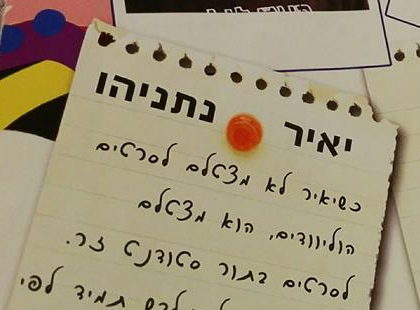 יאיר נתניהו
כשיאיר לא מצאלם לסרטים
הוליוודים, הוא מצאלם
לסרטים בתור סטודנט זר.
תמיד לפי